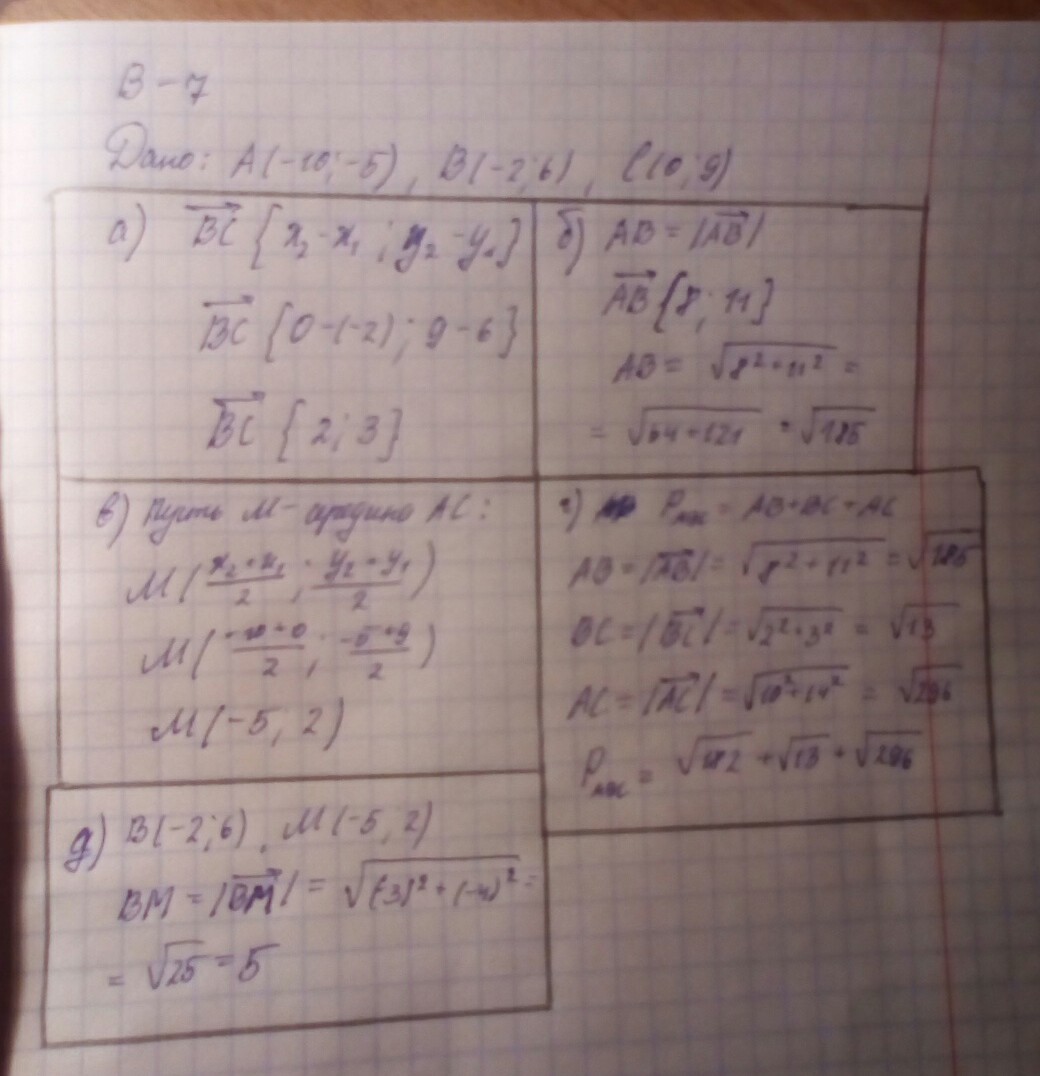 В-7
Дано: A(-10;-5), B(-2;6), C(0;9)
а) BC {x₂-x₁; y₂-y₁}
BC {0-(-2); 9-6}
BC {2; 3}
б) AB = |AB|
AB {8; 11}
AB = √8²+11² =
= √64+121 = √185
в) Пусть M- середина AC:
M(x₂+x₁/2; y₂+y₁/2)
M(-10+0/2; -5+9/2)
M(-5; 2)
г) P = AB+BC+AC
AB = |AB| = √8²+11² = √185
BC = |BC| = √2²+3² = √13
AC = |AC| = √10²+14² = √296
P = +√13+√296
д) B(-2;6), M(-5; 2)
BM = |BM| = √(-3)²+(-4)² =
= √25 = 5